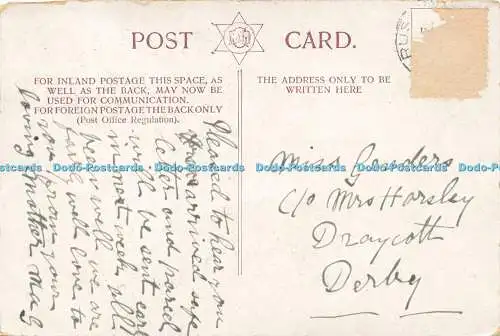 POST CARD.
FOR INLAND POSTAGE THIS SPACE, AS
WELL AS THE BACK, MAY NOW BE
USED FOR COMMUNICATION.
FOR FOREIGN POSTAGE THE BACK ONLY
(Post Office Regulation).
THE ADDRESS ONLY TO BE
WRITTEN HERE
Pleased to hear you
have arrived safe
letter and parcel
will be sent early
in next week all
well we are
love to
you from your
loving Mother
Miss
c/o Mrs Harsley
Draycott
Derby
Dodo-Postcards Dodo-Postcards Dodo-Postcards Dodo-Postcards Dodo-Postcards
Dodo-Postcards Dodo-Postcards Dodo-Postcards Dodo-Postcards Dodo-Postcards